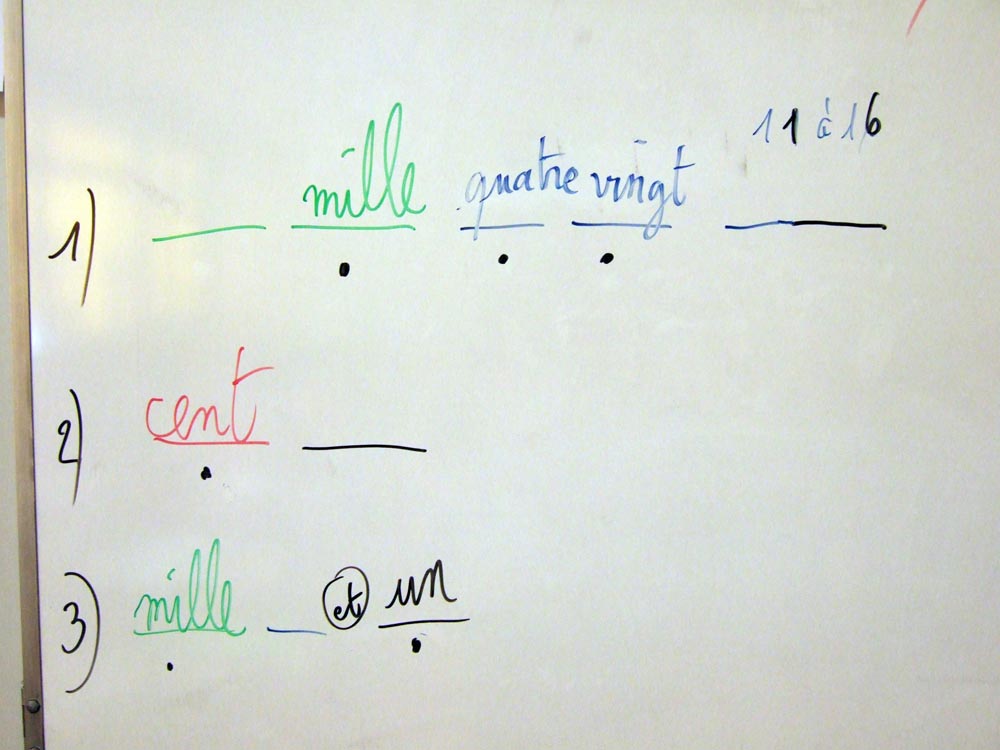 11 à 16
1) ___ mille quatre vingt ___
2) cent ___
3) mille ___ et un